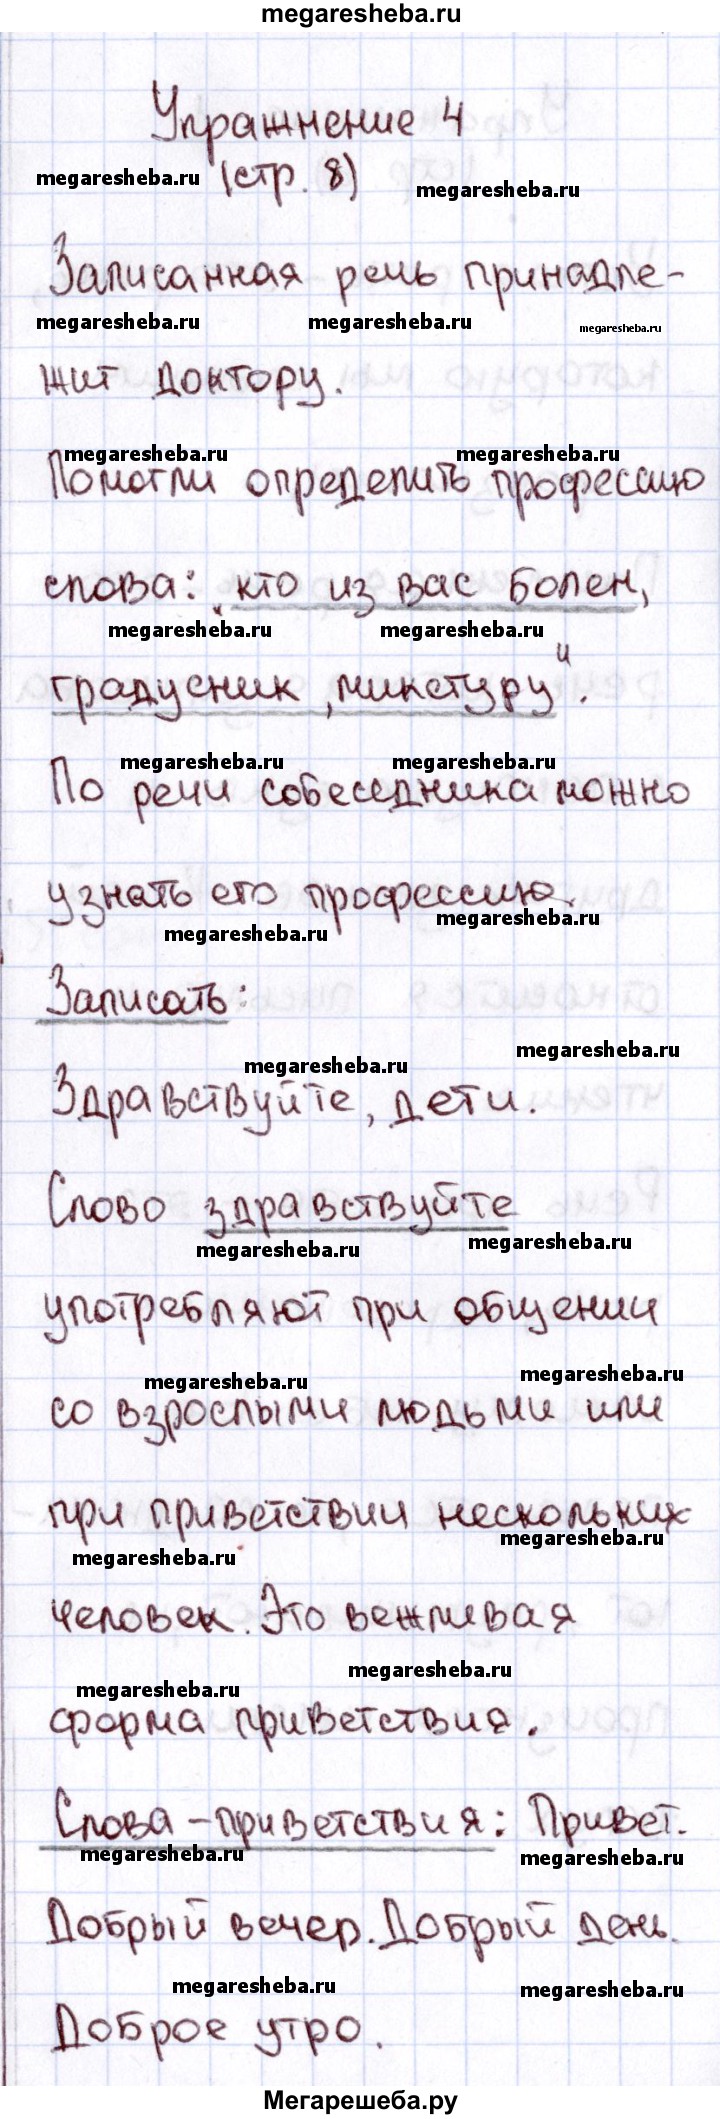 megaresheba.ru
Упражнение 4
megaresheba.ru (стр. 8) megaresheba.ru
Записанная речь принадле-
megaresheba.ru megaresheba.ru megaresheba.ru
жит доктору.
megaresheba.ru megaresheba.ru
Помогли определить профессию
слова: „кто из вас болен,
megaresheba.ru megaresheba.ru
градусник, микстуру“.
megaresheba.ru megaresheba.ru
По речи собеседника можно
узнать его профессию.
megaresheba.ru megaresheba.ru
Записать:
megaresheba.ru megaresheba.ru
Здравствуйте, дети.
Слово здравствуйте
megaresheba.ru megaresheba.ru
употребляют при общении
megaresheba.ru megaresheba.ru
со взрослыми людьми или
при приветствии нескольких
megaresheba.ru megaresheba.ru
человек. Это вежливая
megaresheba.ru megaresheba.ru
форма приветствия.
Слова-приветствия: Привет.
megaresheba.ru megaresheba.ru
Добрый вечер. Добрый день.
megaresheba.ru megaresheba.ru
Доброе утро.
Мегарешеба.ру